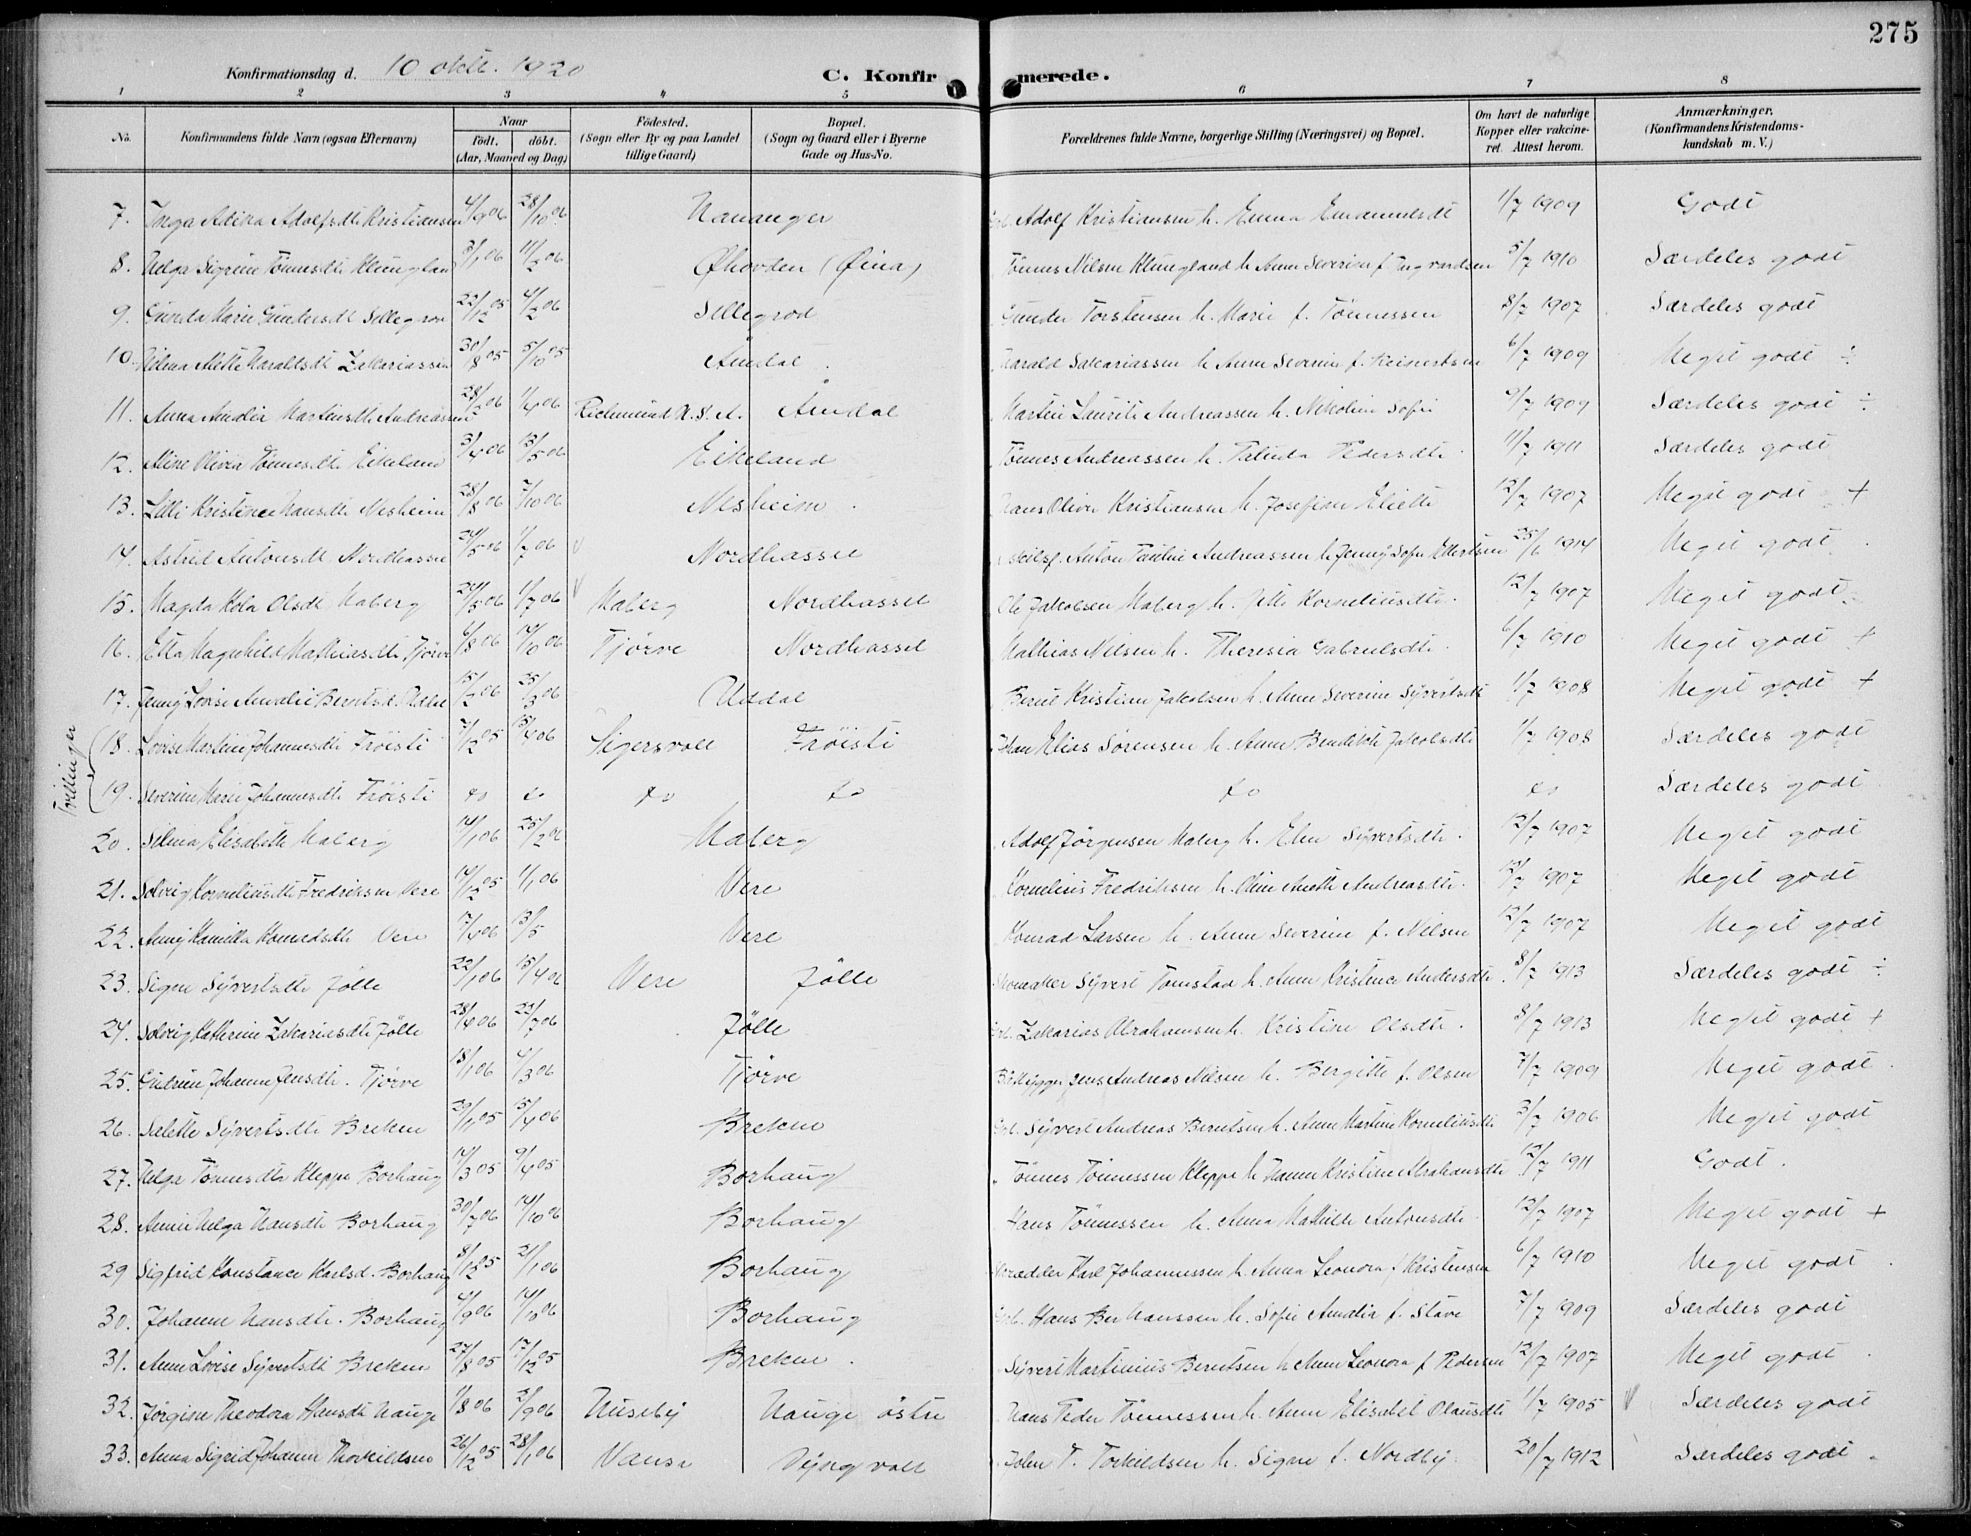 275
Konfirmationsdag d. 10 okt. 1920 C. Konfirmerede.
1 2 3 4 5 6 7 8
No. Konfirmandens fulde Navn (ogsaa Efternavn) Naar Födt. döbt. (Aar, Maaned og Dag) Födested. (Sogn eller By og paa Landet tillige Gaard) Bopæl. (Sogn og Gaard eller i Byerne Gade og Hus-No. Forældrenes fulde Navne, borgerlige Stilling (Næringsvei) og Bopæl. Om havt de naturlige Kopper eller vakcineret. Attest herom. Anmærkninger. (Konfirmandens Kristendomskundskab m. V.)
7. Inga Adolfsdt Kristiansen 4/9 06 28/10 06 Hananger Adolf Kristiansen h. Emma Emanuelsdt 1/7 1909 Godt
8. Helga Sigrine Tönnesdt Klungland 3/1 06 11/2 06 Øhovden (Øina) Tönnes Nilsen Klungland h. Anne Severine f. Ingvardsen 5/7 1910 Særdeles godt
9. Gunda Marie Gundersdt Sellegrod 22/12 05 4/2 06 Sellegrod Gunder Torstensen h. Marie f. Tönnessen 8/7 1907 Særdeles godt
10. Mette Haraldsdt Zakariassen 30/8 05 5/10 05 Åmdal Harald Sakariassen h. Anne Severine f. Reinertsen 6/7 1909 Meget godt ÷
11. Anna Amalie Martinsdt Andreassen 28/2 06 1/4 06 Richmund N. S. A. Åmdal Martin Laurits Andreassen h. Nikoline Sofie 9/7 1909 Særdeles godt ÷
12. Aline Olivia Tönnesdt Eikeland 3/4 06 13/5 06 Eikeland Tönnes Andreassen h. Pedersdt. 11/7 1911 Særdeles godt
13. Lilli Kristince Hansdt Nesheim 28/8 06 7/10 06 Nesheim Hans Oliver Kristiansen h. Josefine Eliedt 12/7 1907 Meget godt +
14. Astrid Antonsdt Nordhassel 24/5 06 1/7 06 Nordhassel Anton Andreassen h. Jenny Sofie 25/6 1914 Meget godt
15. Magda Kola Olsdt Maberg 24/5 06 1/7 06 Maberg Nordhassel Ole Jakobsen Maberg h. Jette Korneliusdt. 12/7 1907 Meget godt
16. Etta Magnhild Mathiasdt. Tjörve 6/8 06 14/10 06 Tjörve Nordhassel Mathias Nilsen h. Theresia Gabrielsdt. 6/7 1910 Meget godt +
17. Jenny Lovise Amalie Berntsd. Uddal 15/2 06 25/3 06 Uddal Bernt Kristian Jakobsen h. Anne Severine Syvertsdt 1/7 1908 Meget godt +
Tvillinger
18. Lovise Martine Johannesdt. Fröisti 7/12 05 15/4 06 Sigersvoll Fröisti Johan Elias Sörensen h. Anne Bendikte Jakobsdt 1/7 1908 Særdeles godt
19. Severine Marie Johannesdt. Fröisti do do do do do do Særdeles godt
20. Selma Elisabeth Maberg 14/1 06 25/2 06 Maberg Adolf Jörgensen Maberg h. Elen Syvertsdt. 12/7 1907 Meget godt
21. Solveig Korneliusdt Fredriksen Vere 14/12 05 1/1 06 Vere Kornelius Fredriksen h. Andreasdt. 12/7 1907 Meget godt
22. Anny Kamilla Konradsdt Vere 17/4 06 13/5 Vere Konrad Larsen h. Anne Severine f. Nilsen 12/7 1907 Meget godt
23. Signe Syvertsdt Jölle 22/1 06 15/4 06 Vere Jölle Skomaker Syvert Tomstad h. Anne Kristence Andersdt. 8/7 1913 Særdeles godt ÷
24. Solveig Kathrine Zakariasdt. Jölle 28/4 06 22/7 06 Jölle Zakarias Abrahamsen h. Kristine Olsdt. 8/7 1913 Meget godt +
25. Gudrun Johanne Jensdt. Tjörve 18/1 06 4/3 06 Tjörve Båtbygger Jens Andreas Nilsen h. Bergitte f. Olsen 7/7 1909 Meget godt
26. Salette Syvertsdt. Brekne 29/1 05 15/4 06 Brekne Syvert Andreas Berntsen h. Anne Martine Korneliusdt. 3/7 1906 Meget godt
27. Helga Tönnesdtr Kleppe Borhaug 14/3 05 9/4 05 Borhaug Tönnes Tönnessen Kleppe h. Hanne Kristine Abrahamsdt 12/7 1911 Godt.
28. Annie Helga Hansdt. Borhaug 30/7 06 14/10 06 Borhaug Hans Tönnessen h. Anna Mathilde Antonsdt. 12/7 1907 Meget godt +
29 Sigfrid Konstance Karlsd. Borhaug 8/12 05 21/1 06 Borhaug Skrædder Karl Johannessen h. Anna Leonora f. Kristensen 6/7 1910 Meget godt
30. Johanne Hansdt. Borhaug 4/9 06 14/10 06 Borhaug Hans Ber Hanssen h. Sofie Amalia f. Stave 7/7 1909 Særdeles godt
31. Anne Lovise Syvertsdt Brekne 27/8 05 17/12 05 Brekne Syvert Martinius Berntsen h. Anne Leonora f. Pedersen 12/7 1907 Meget godt
32. Jörgine Theodora Hansdt Hauge 1/8 06 2/9 06 Huseby Hauge östre Hans Peder Tönnessen h. Anne Elisabet Olausdt 1/7 1905 Særdeles godt
33. Anna Sigrid Johanne Thorkildsen 26/12 05 28/1 06 Vanse Dyngvoll John T. Torkildsen h. Signe f. Nordby. 20/7 1912 Særdeles godt